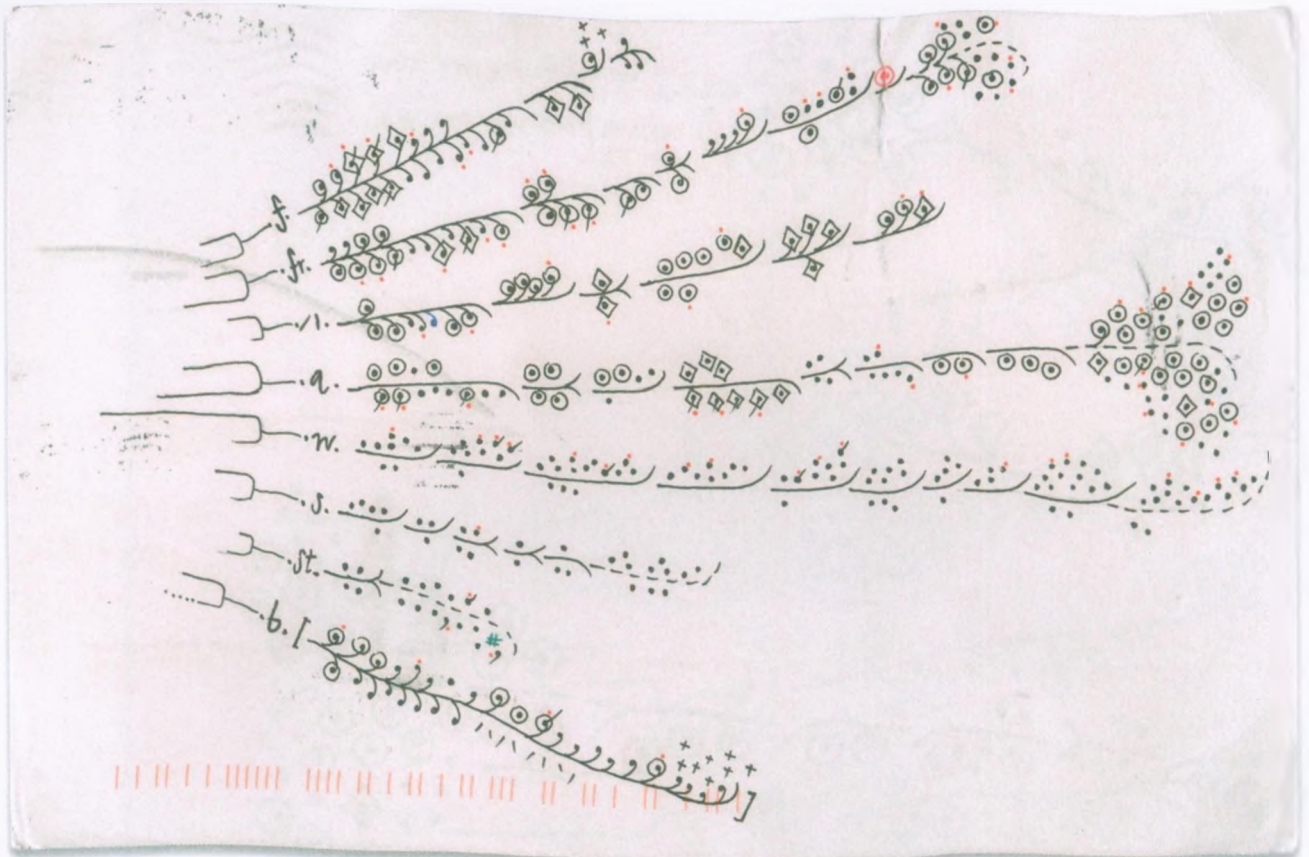 .f.
.fr.
.n.
.a.
.w.
.s.
.st.
.b. [
]